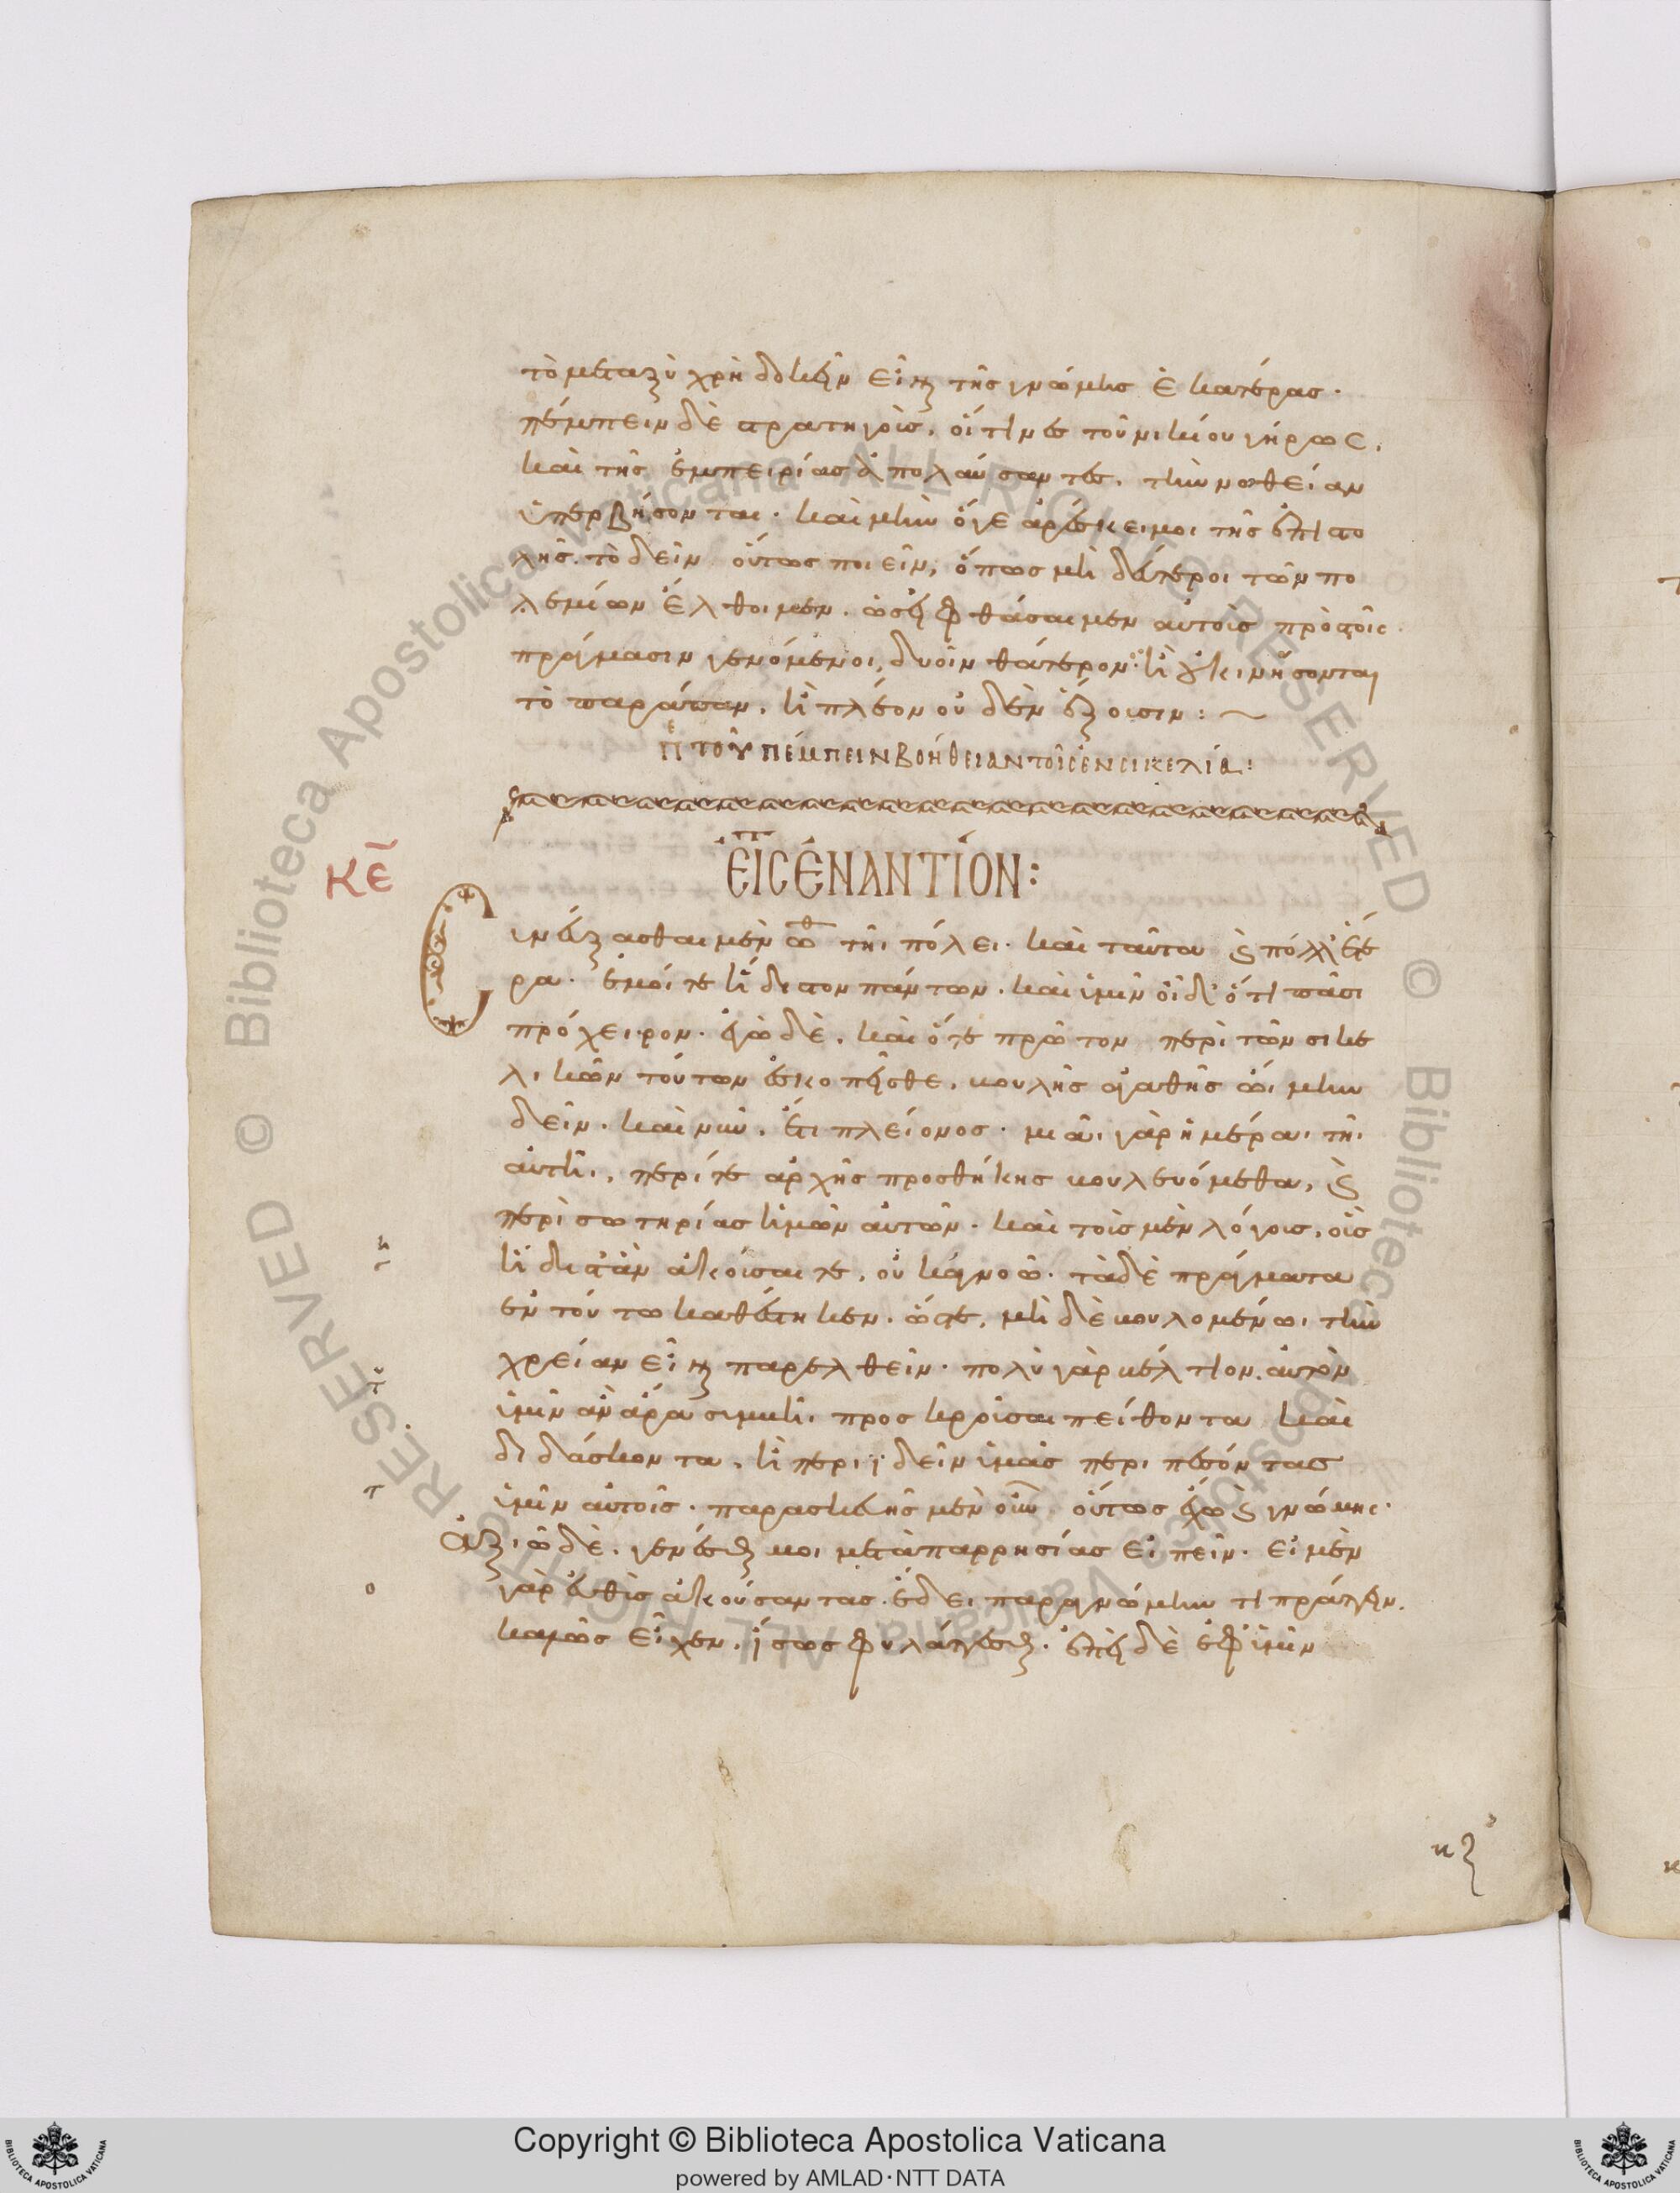 τὸ μεταξὺ χρὴ δοκεῖν εἶναι τῆς γνώμης ἑκατέρας·
πέμπειν δὲ στρατηγοὺς, οἵτινες τοῦ νικίου γήρως,
καὶ τῆς ἐμπειρίας ἀπολαύσαντες, τὴν νοθείαν
ὑπερβήσονται· καὶ μὴν ὅ γε ἀρέσκει μοι τῆς ἐπιστο
λῆς. τὸ δεῖν οὕτως ποιεῖν, ὅπως μὴ δεύτεροι τῶν πο
λεμίων ἔλθοιμεν. ὡς εἰ φθάσαιμεν αὐτοὺς πρὸς τοῖς
πράγμασιν γενόμενοι, δυοῖν θάτερον· ἢ οὐ κινήσονται
τὸ παράπαν, ἢ πλέον οὐδὲν ἕξουσιν:
τοῦ πέμπειν βοήθειαν τοῖς ἐν σικελίᾳ:
κε
ΕἸΣ ἘΝΑΝΤΊΟΝ:
Συνεύξασθαι μὲν ἀγαθὰ τῆι πόλει. καὶ ταῦτα καὶ πολλῷ ἕτε
ρα. ἐμοί τε ἥδιστον πάντων. καὶ ὑμῖν οἶδ' ὅτι πᾶσι
πρόχειρον. ἐγὼ δὲ, καὶ ὅτε πρῶτον περὶ τῶν σικε
λικῶν τούτων ἐσκοπεῖσθε, βουλῆς ἀγαθῆς ᾤιμην
δεῖν. καὶ νῦν, ἔτι πλείονος. μιᾶι γὰρ ἡμέραι τῆι
αὐτῆι, περί τε ἀρχῆς προσθήκης βουλευόμεθα, καὶ
περὶ σωτηρίας ἡμῶν αὐτῶν. καὶ τοῖς μὲν λόγοις, οἷς
ἥδιστ' ἂν ἀκούσαιτε, οὐκ ἀγνοῶ. τὰ δὲ πράγματα
ἐν τούτω καθέστηκεν. ὥστε, μὴ δὲ βουλομένωι τὴν
χρείαν εἶναι παρελθεῖν. πολὺ γὰρ βέλτιον, αὐτὸν
ὑμῖν ἀνιαρᾶ συμβῆι προσκροῦσαι πείθοντα καὶ
διδάσκοντα, ἢ περιιδεῖν ὑμᾶς περιπεσόντας
ὑμῖν αὐτοῖς. παρασκευῆς μὲν οὖν οὕτως ἔχω καὶ γνώμης.
Ἀξιῶ δὲ, γενέσθαι μοι μετὰ παρρησίας εἰπεῖν. εἰ μὲν
γὰρ εὐθὺς ἀκούσαντας, ἔδει παρὰ γνώμην τι πράττειν.
καλῶς εἶχεν, ἴσως φυλάττεσθαι. ἐπεὶ δὲ ἐφ' ὑμῖν